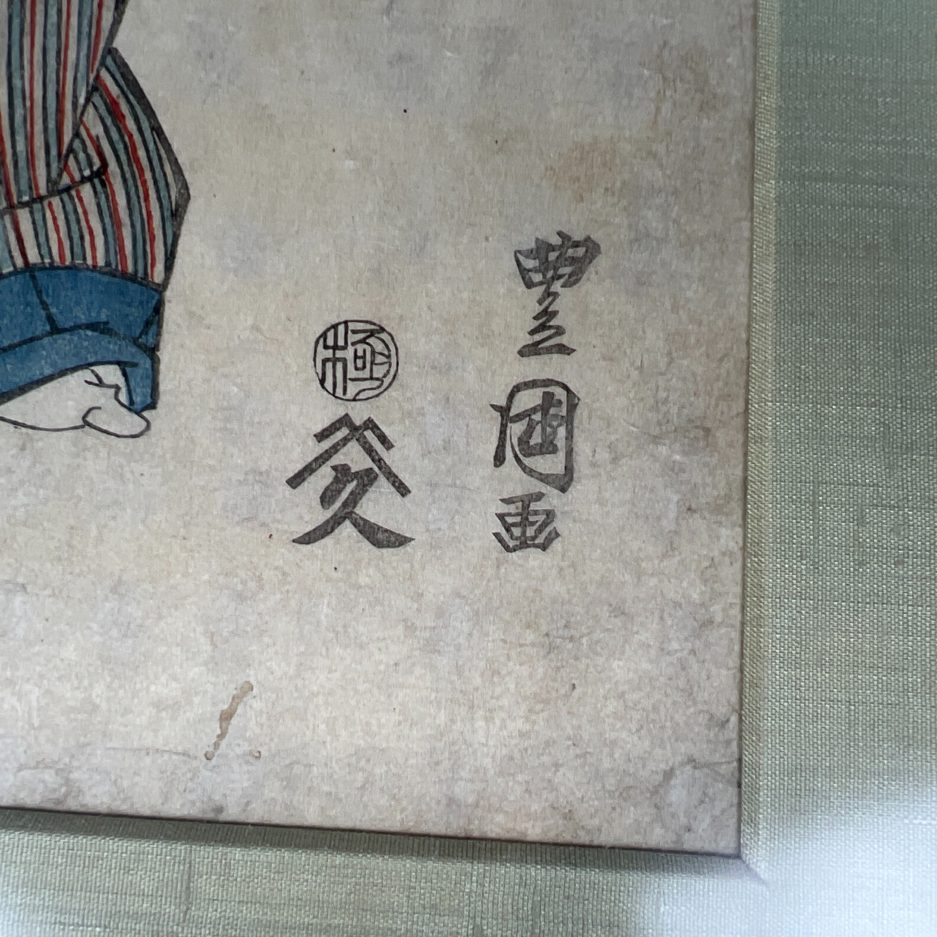 豊国画
極
久